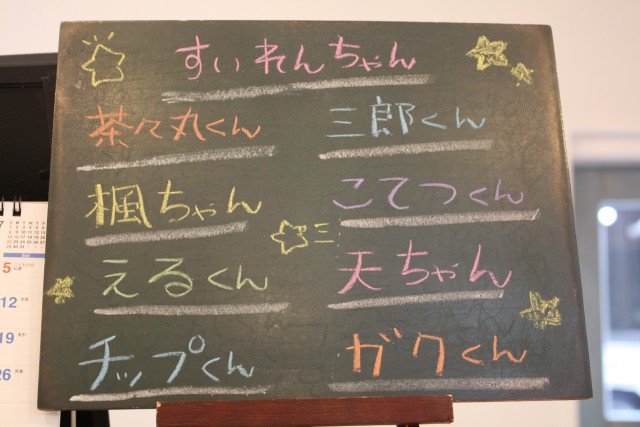 すいれんちゃん
茶々丸くん
三郎くん
楓ちゃん
こてつくん
えるくん
天ちゃん
チップくん
ガクくん
5
12
19
26